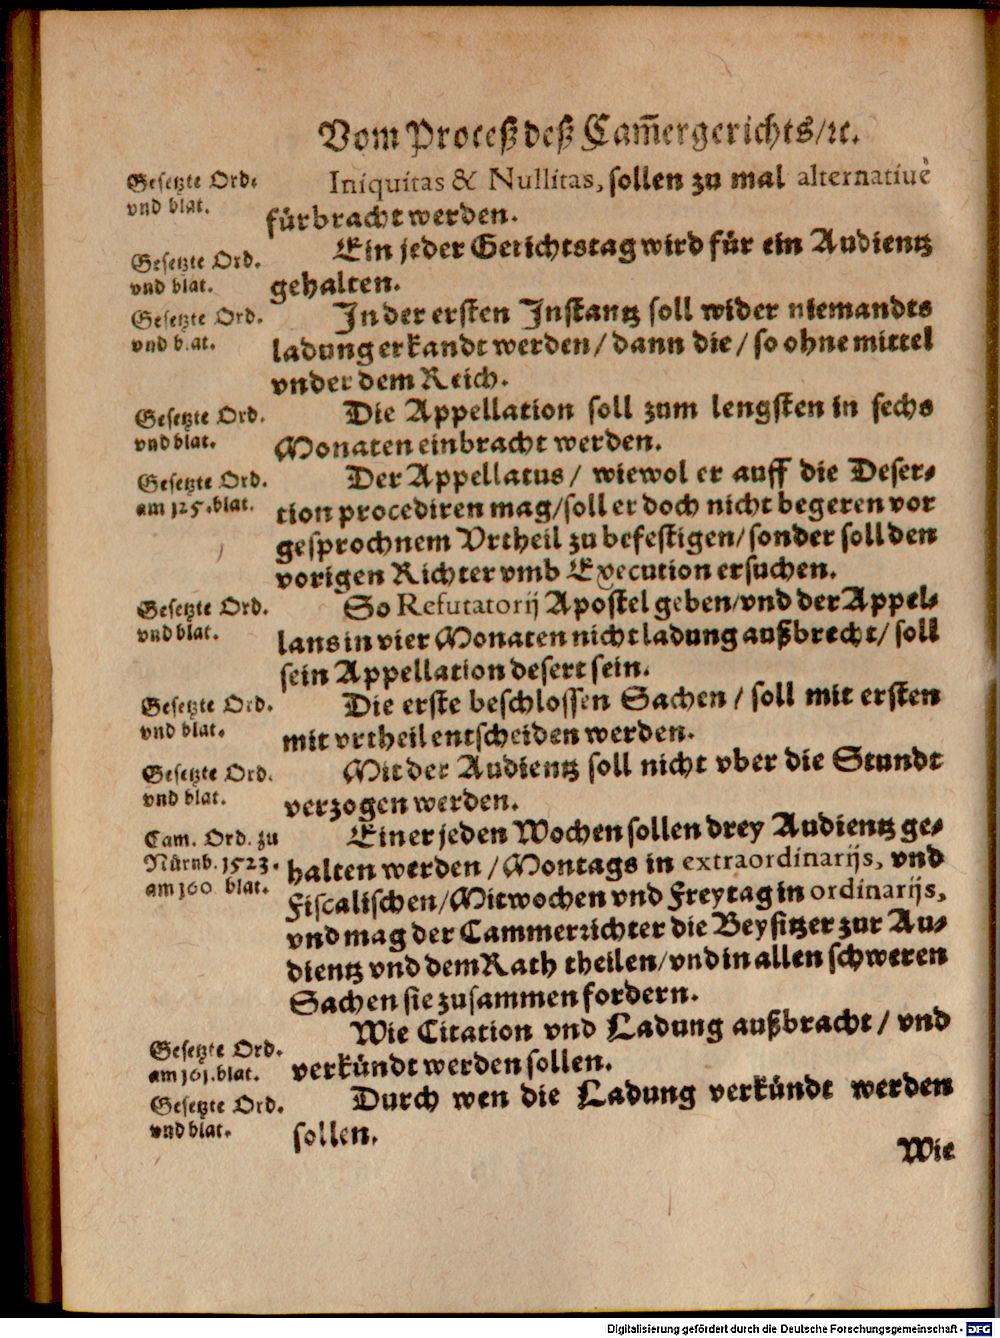 Vom Proceß deß Cam̃ergerichts/ ꝛc.
Gesetzte Ord.
vnd blat.
Iniquitas & Nullitas, sollen zu mal alternatiuè
fürbracht werden.
Gesetzte Ord.
vnd blat.
Ein jeder Gerichtstag wird für ein Audientz
gehalten.
Gesetzte Ord.
vnd blat.
In der ersten Instantz soll wider niemandts
ladung erkandt werden/ dann die/ so ohne mittel
vnder dem Reich.
Gesetzte Ord.
vnd blat.
Die Appellation soll zum lengsten in sechs
Monaten einbracht werden.
Gesetzte Ord.
am 125. blat.
Der Appellatus/ wiewol er auff die Deser-
tion procediren mag/ soll er doch nicht begeren vor
gesprochnem Vrtheil zu befestigen/ sonder soll den
vorigen Richter vmb Execution ersuchen.
Gesetzte Ord.
vnd blat.
So Refutatorij Apostel geben/ vnd der Appel-
lans in vier Monaten nicht ladung außbrecht/ soll
sein Appellation desert sein.
Gesetzte Ord.
vnd blat.
Die erste beschlossen Sachen/ soll mit ersten
mit vrtheil entscheiden werden.
Gesetzte Ord.
vnd blat.
Mit der Audientz soll nicht vber die Stundt
verzogen werden.
Cam. Ord. zu
Nürnb. 1523.
am 160 blat.
Einer jeden Wochen sollen drey Audientz ge-
halten werden/ Montags in extraordinarijs, vnd
Fiscalischen/ Mitwochen vnd Freytag in ordinarijs,
vnd mag der Cammerrichter die Beysitzer zur Au-
dientz vnd dem Rath theilen/ vnd in allen schweren
Sachen sie zusammen fordern.
Gesetzte Ord.
am 161. blat.
Wie Citation vnd Ladung außbracht/ vnd
verkündt werden sollen.
Gesetzte Ord.
vnd blat.
Durch wen die Ladung verkündt werden
sollen.
Wie
Digitalisierung gefördert durch die Deutsche Forschungsgemeinschaft - DFG